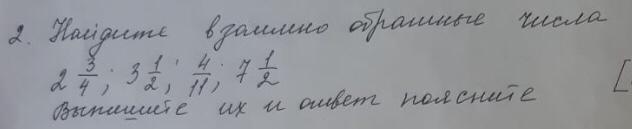 2. Найдите взаимно обратные числа
2 3/4; 3 1/2; 4/11; 7 1/2
Выпишите их и ответ поясните [